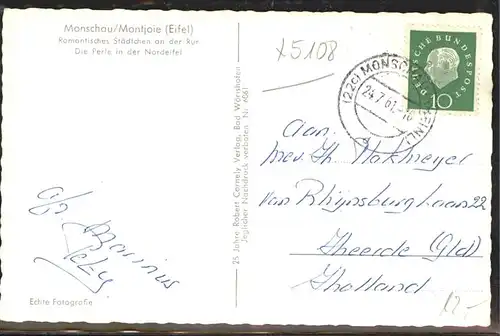 Monschau/Montjoie (Eifel)
Romantisches Städtchen an der Rur
Die Perle in der Nordeifel
x5108
DEUTSCHE BUNDESPOST
10
(22c) MONSCHAU
24.7.61.-16
25 Jahre Robert Cornely Verlag, Bad Wörishofen
Jeglicher Nachdruck verboten Nr. 6061
Aan.
mev. Th Hokmeyer
van Rhijnsburglaan 22
Heerde (Gld)
Holland
Marinus
Echte Fotografie
12,-